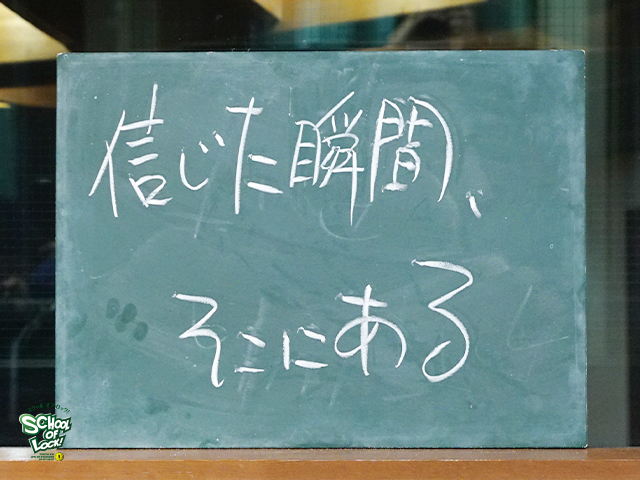 信じた瞬間、
そこにある
SCHOOL
OF
LOCK!